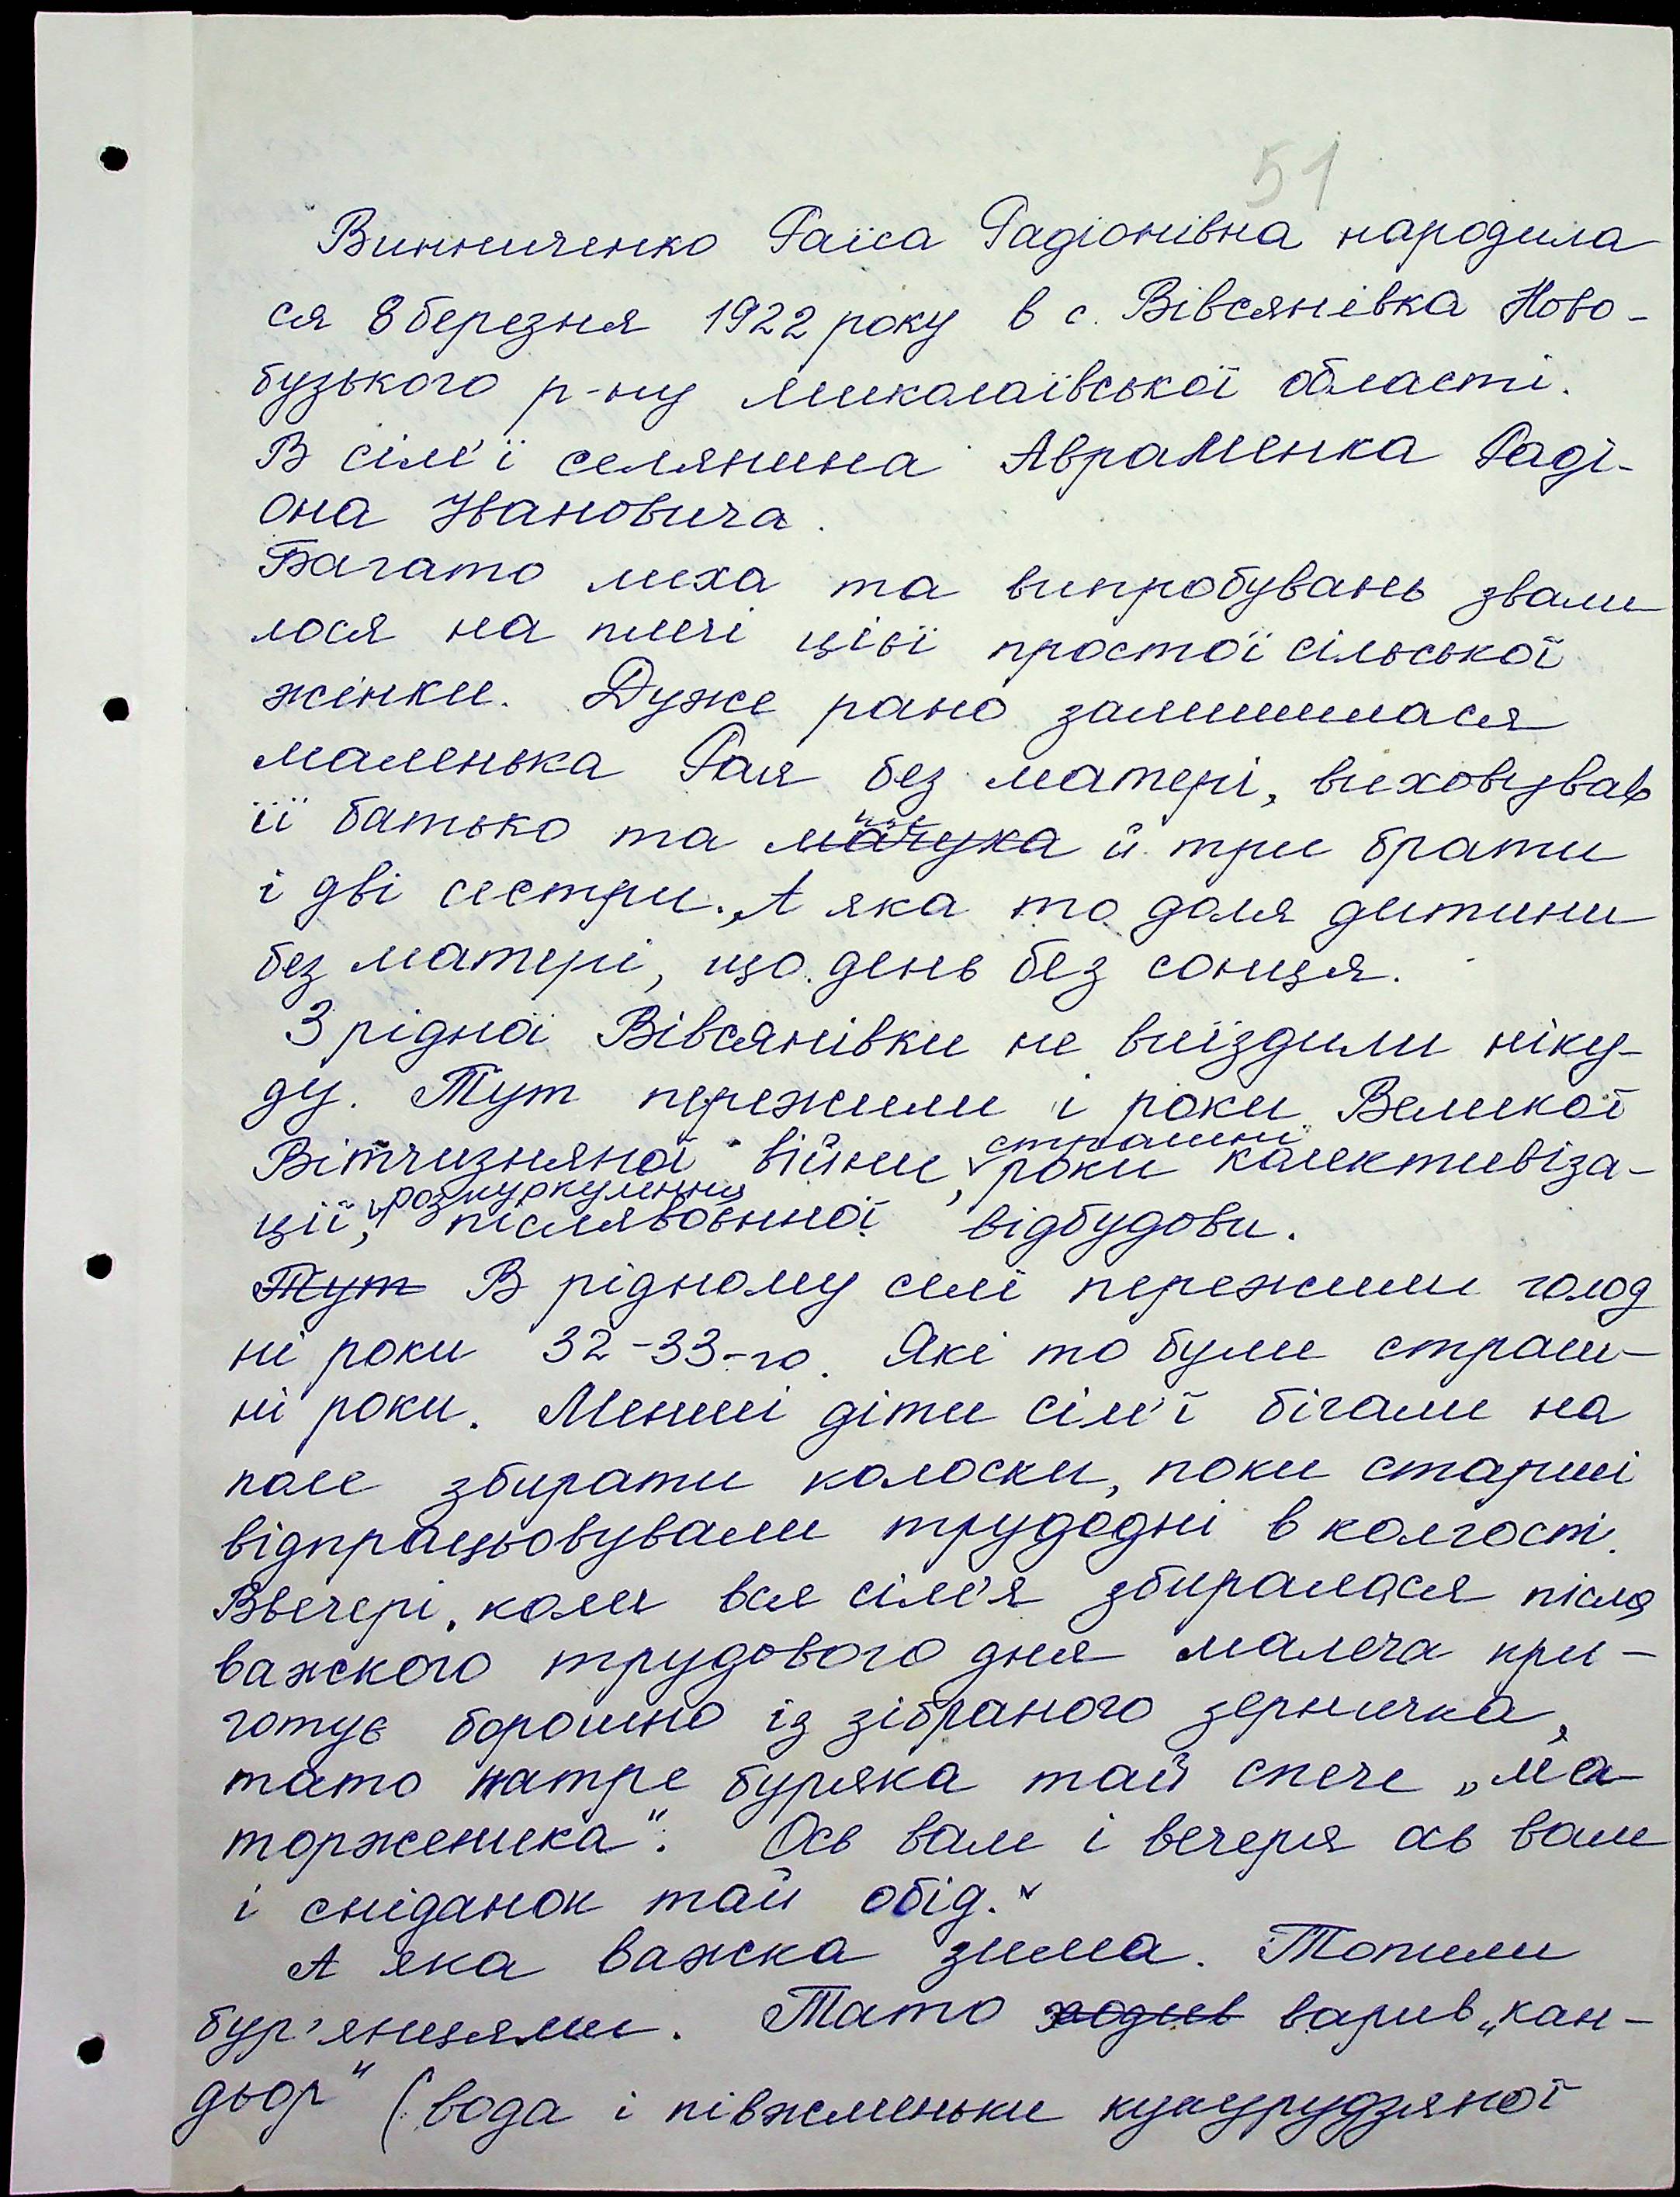 51
Винниченко Раїса Радіонівна народила
ся 8 березня 1922 року в с. Вівсянівка Ново-
бузького р-ну Миколаївської області.
В сім'ї селянина Авраменка Раді-
она Івановича.
Багато лиха та випробувань звали
лося на плечі цієї простої сільської
жінки. Дуже рано залишилася
маленька Рая без матері, виховував
її батько та мачуха й три брати
і дві сестри. А яка то доля дитини
без матері, що день без сонця.
З рідної Вівсянівки не виїздили ніку-
ду. Тут пережили і роки Великої
Вітчизняної війни, страшні роки колективіза-
ції, розкуркулення післявоєнної відбудови.
Тут В рідному селі пережили голод
ні роки 32-33-го. Які то були страш-
ні роки. Менші діти сім'ї бігали на
поле збирати колоски, поки старші
відпрацьовували трудодні в колгості.
Ввечері, коли вся сім'я збиралася після
важкого трудового дня малеча при-
готує борошно із зібраного зерничка,
тато натре буряка тай спече „ма
торженика". Ось вам і вечеря ось вам
і сніданок тай обід.
А яка важка зима. Топили
бур'янцями. Тато ходив варив „кан-
дьор" (вода і півжменьки кукурудзяної